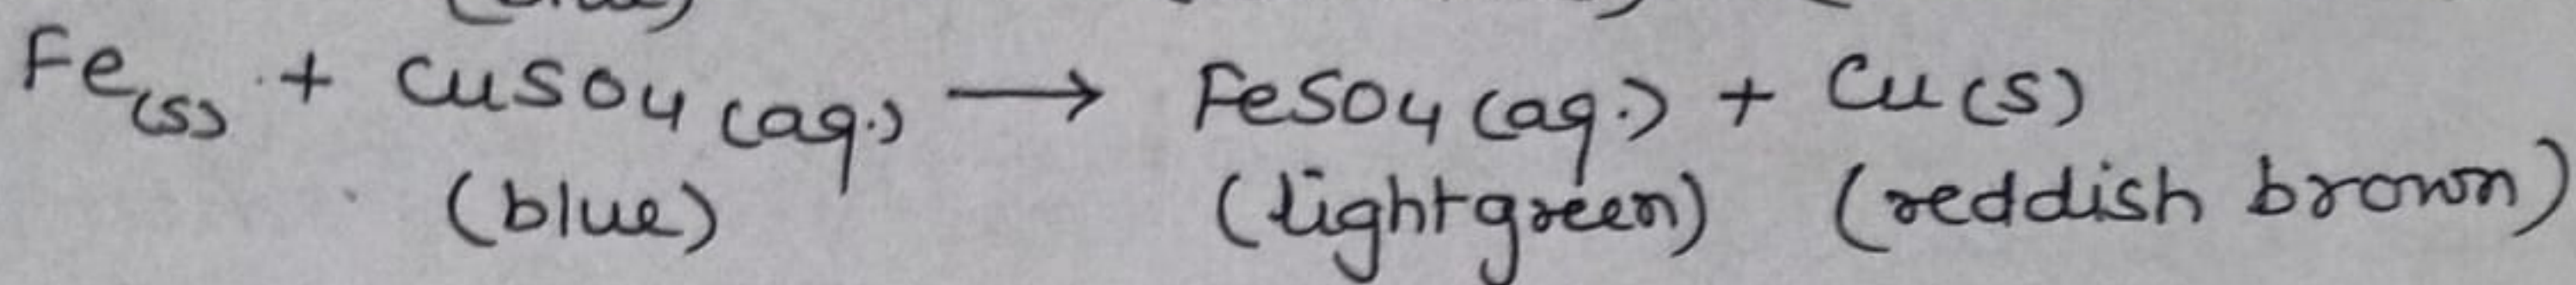 Fe(s) + CuSO4 (aq.) → FeSO4 (aq.) + Cu (s)
(blue) (light green) (reddish brown)